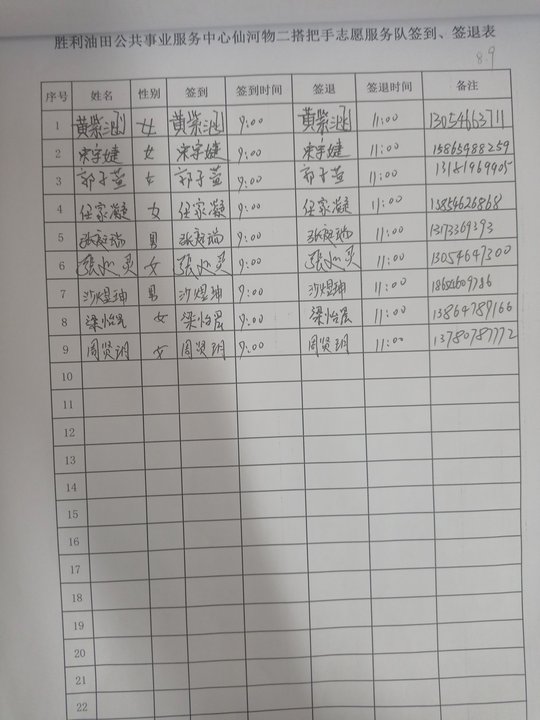 胜利油田公共事业服务中心仙河物二搭把手志愿服务队签到、签退表
8.9
序号 姓名 性别 签到 签到时间 签退 签退时间 备注
1 黄紫涵 女 黄紫涵 9:00 黄紫涵 11:00 13054663711
2 宋宇婕 女 宋宇婕 9:00 宋宇婕 11:00 15865988259
3 郭子萱 女 郭子萱 9:00 郭子萱 11:00 13181969905
4 任家凝 女 任家凝 9:00 任家凝 11:00 13854626868
5 张庭瑞 男 张庭瑞 9:00 张庭瑞 11:00 13173369393
6 张 灵 女 张 灵 9:00 张 灵 11:00 13054647300
7 沙煜珅 男 沙煜珅 9:00 沙煜珅 11:00 18654609786
8 梁怡 女 梁怡 9:00 梁怡 11:00 13864789166
9 周贤玥 女 周贤玥 9:00 周贤玥 11:00 13780787772
10
11
12
13
14
15
16
17
18
19
20
21
22